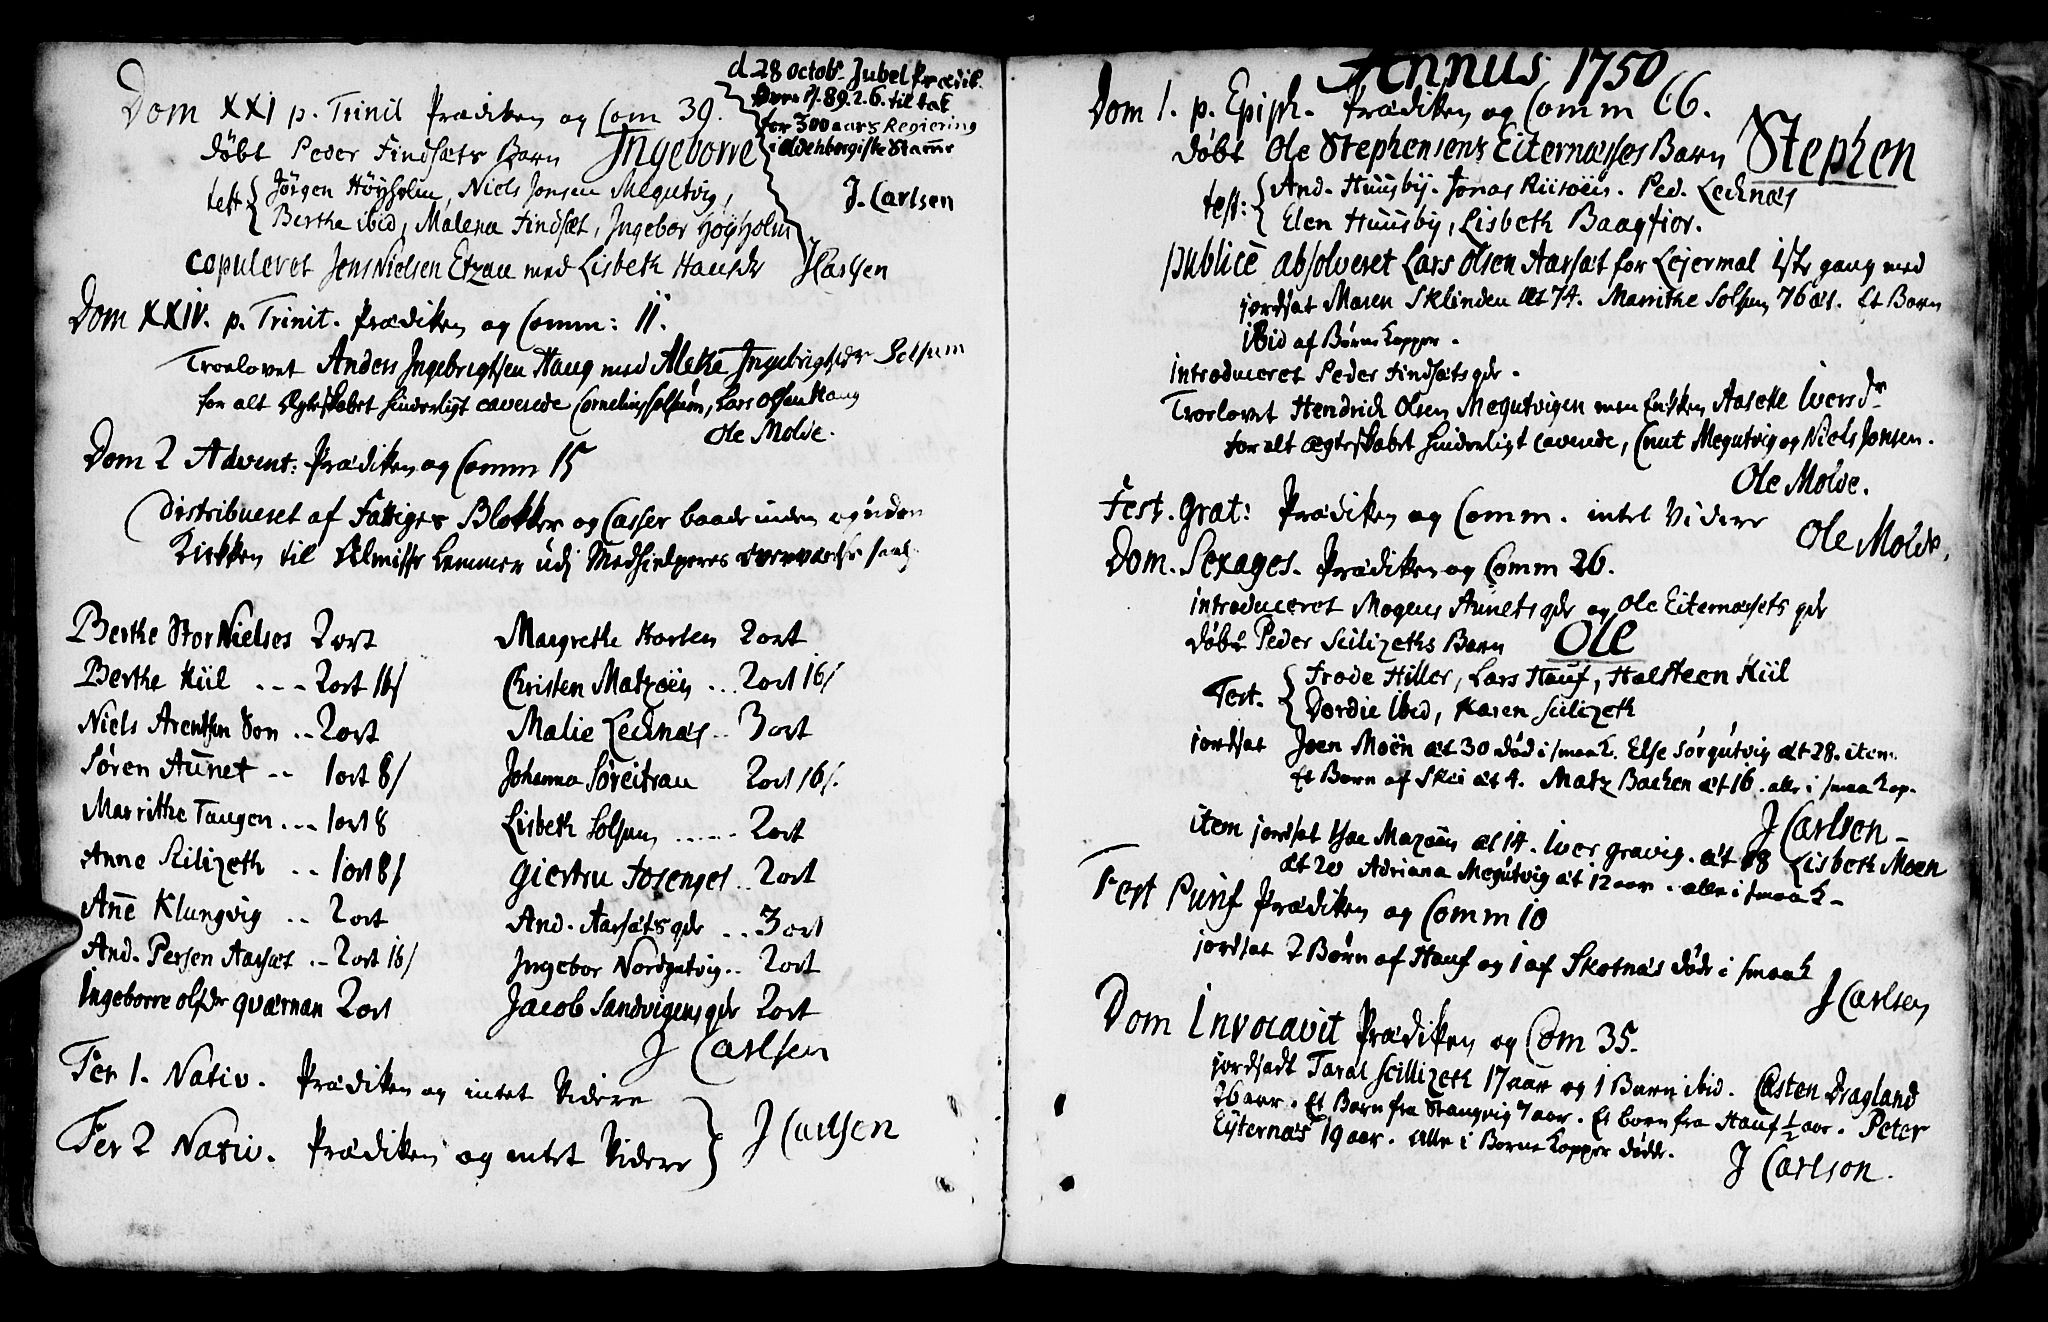 Dom XXI p. Trinit Prædiken og Com 39.
d 28 octob. Jubel Prædik.
over ps. 89. 2. 6. til tak
for 300 aars Regiering
i oldenborgiske Stamme
døbt Peder Findsæts Barn Ingeborre
test Jørgen Høyholm, Niels Jonsen Megutvig,
Berthe ibid, Malena Findsæt, Ingebor Høyholm
J. Carlsen
copuleret Jens Nielsen Etzau med Lisbeth Hansdr J Carlsen
Dom XXIV. p. Trinit. Prædiken og Comm: 11.
Troelovet Anders Ingebrigtsen Haug med Alethe Ingebrigtsdr Solsem
for alt Ægteskabet hinderligt caverede Cornelius Solsem, Lars Olsen Haug
Ole Molde.
Dom 2 Advent: Prædiken og Comm 15
Distribueret af Fattiges Blokker og Casser baade inden og uden
Kirken til Almisse Lemmer udj Medhielperes overværelse
Berthe Stor Nielses 2 ort
Berthe Kiil - - - 2 ort 16 s
Niels Arentsen Son - - 2 ort
Søren Aunet - - 1 ort 8 s
Marrithe Tangen - - - 1 ort 8
Anne Scilizeth - - 1 ort 8 s
Anne Klungvig - - 2 ort
And. Persen Aarsæt - - 2 ort 16 s
Ingeborre olsdr quærnan 2 ort
Margrethe Horten 2 ort
Christen Matzøen - - - 2 ort 16 s
Malie Lecknæs - - 3 ort
Johanna Søreitrau 2 ort 16 s.
Lisbeth Solsem - - - - - 2 ort
Giertru Fosenget - - 2 ort
And. Aarsæts qdr - - 3 ort
Ingebor Nordgutvig - - 2 ort
Jacob Sandvigens qdr 2 ort
J Carlsen
Fer 1. Nativ. Prædiken og intet Videre
Fer 2 Nativ. Prædiken og intet Videre
J Carlsen
Annus 1750
Dom 1. p. Epiph. Prædiken og Comm 66.
døbt Ole Stephensens Eiternæsses Barn Stephen
test: And. Huusby. Jonas Riisøen. Ped. Lecknæs
Elen Huusby, Lisbeth Baagfior.
publice absolveret Lars Olsen Aarsæt for Lejermal 1ste gang med
jordsat Maren Sklinden æt 74. Marrithe Solsem 76 æt. Et Barn
ibid af Børne kopper.
introduceret Peder Findsæts qdr.
Troelovet Hendrich Olsen Megutvigen med Enken Aaseke Iversdr
for alt ægteskabet hinderligt caverede, Cnut Megutvig og Niels Jonsen.
Ole Molde.
Fest. Grat: Prædiken og Comm. intet Videre
Ole Molde.
Dom. Sexages. Prædiken og Comm 26.
introduceret Mogens Aunets qdr og Ole Eiternæsets qdr
døbt Peder Scilizeths Barn Ole
Test. Frode Hiller, Lars Hauf, Halsteen Kiil
Dordie ibid, Karen Scilizeth
jordsat Joen Moen æt 30 død i smaak. Else Sørgutvig æt 28. item
Et Barn af Skei æt 4. Matz Backen æt 16. alle i smaakop.
J Carlsen
item jordsat Mazøen æt 14. Iver gravig. æt 18 Lisbeth Moen
æt 20 Adriana Megutvig æt 12 aar. alle i smaak
Fest Purif Prædiken og Comm 10
jordsat 2 Børn af Hauf og 1 af Skotnæs døde i smaak
J Carlsen
Dom Invocavit Prædiken og Com 35.
jordsadt Taral Scillizeth 17 aar og 1 Barn ibid. Casten Dragland
26 aar. Et Barn fra Stangvig 7 aar. Et born fra Hauf ½ aar. Peter
Eyternæs 19 aar. alle i Borne kopper døde.
J Carlson.